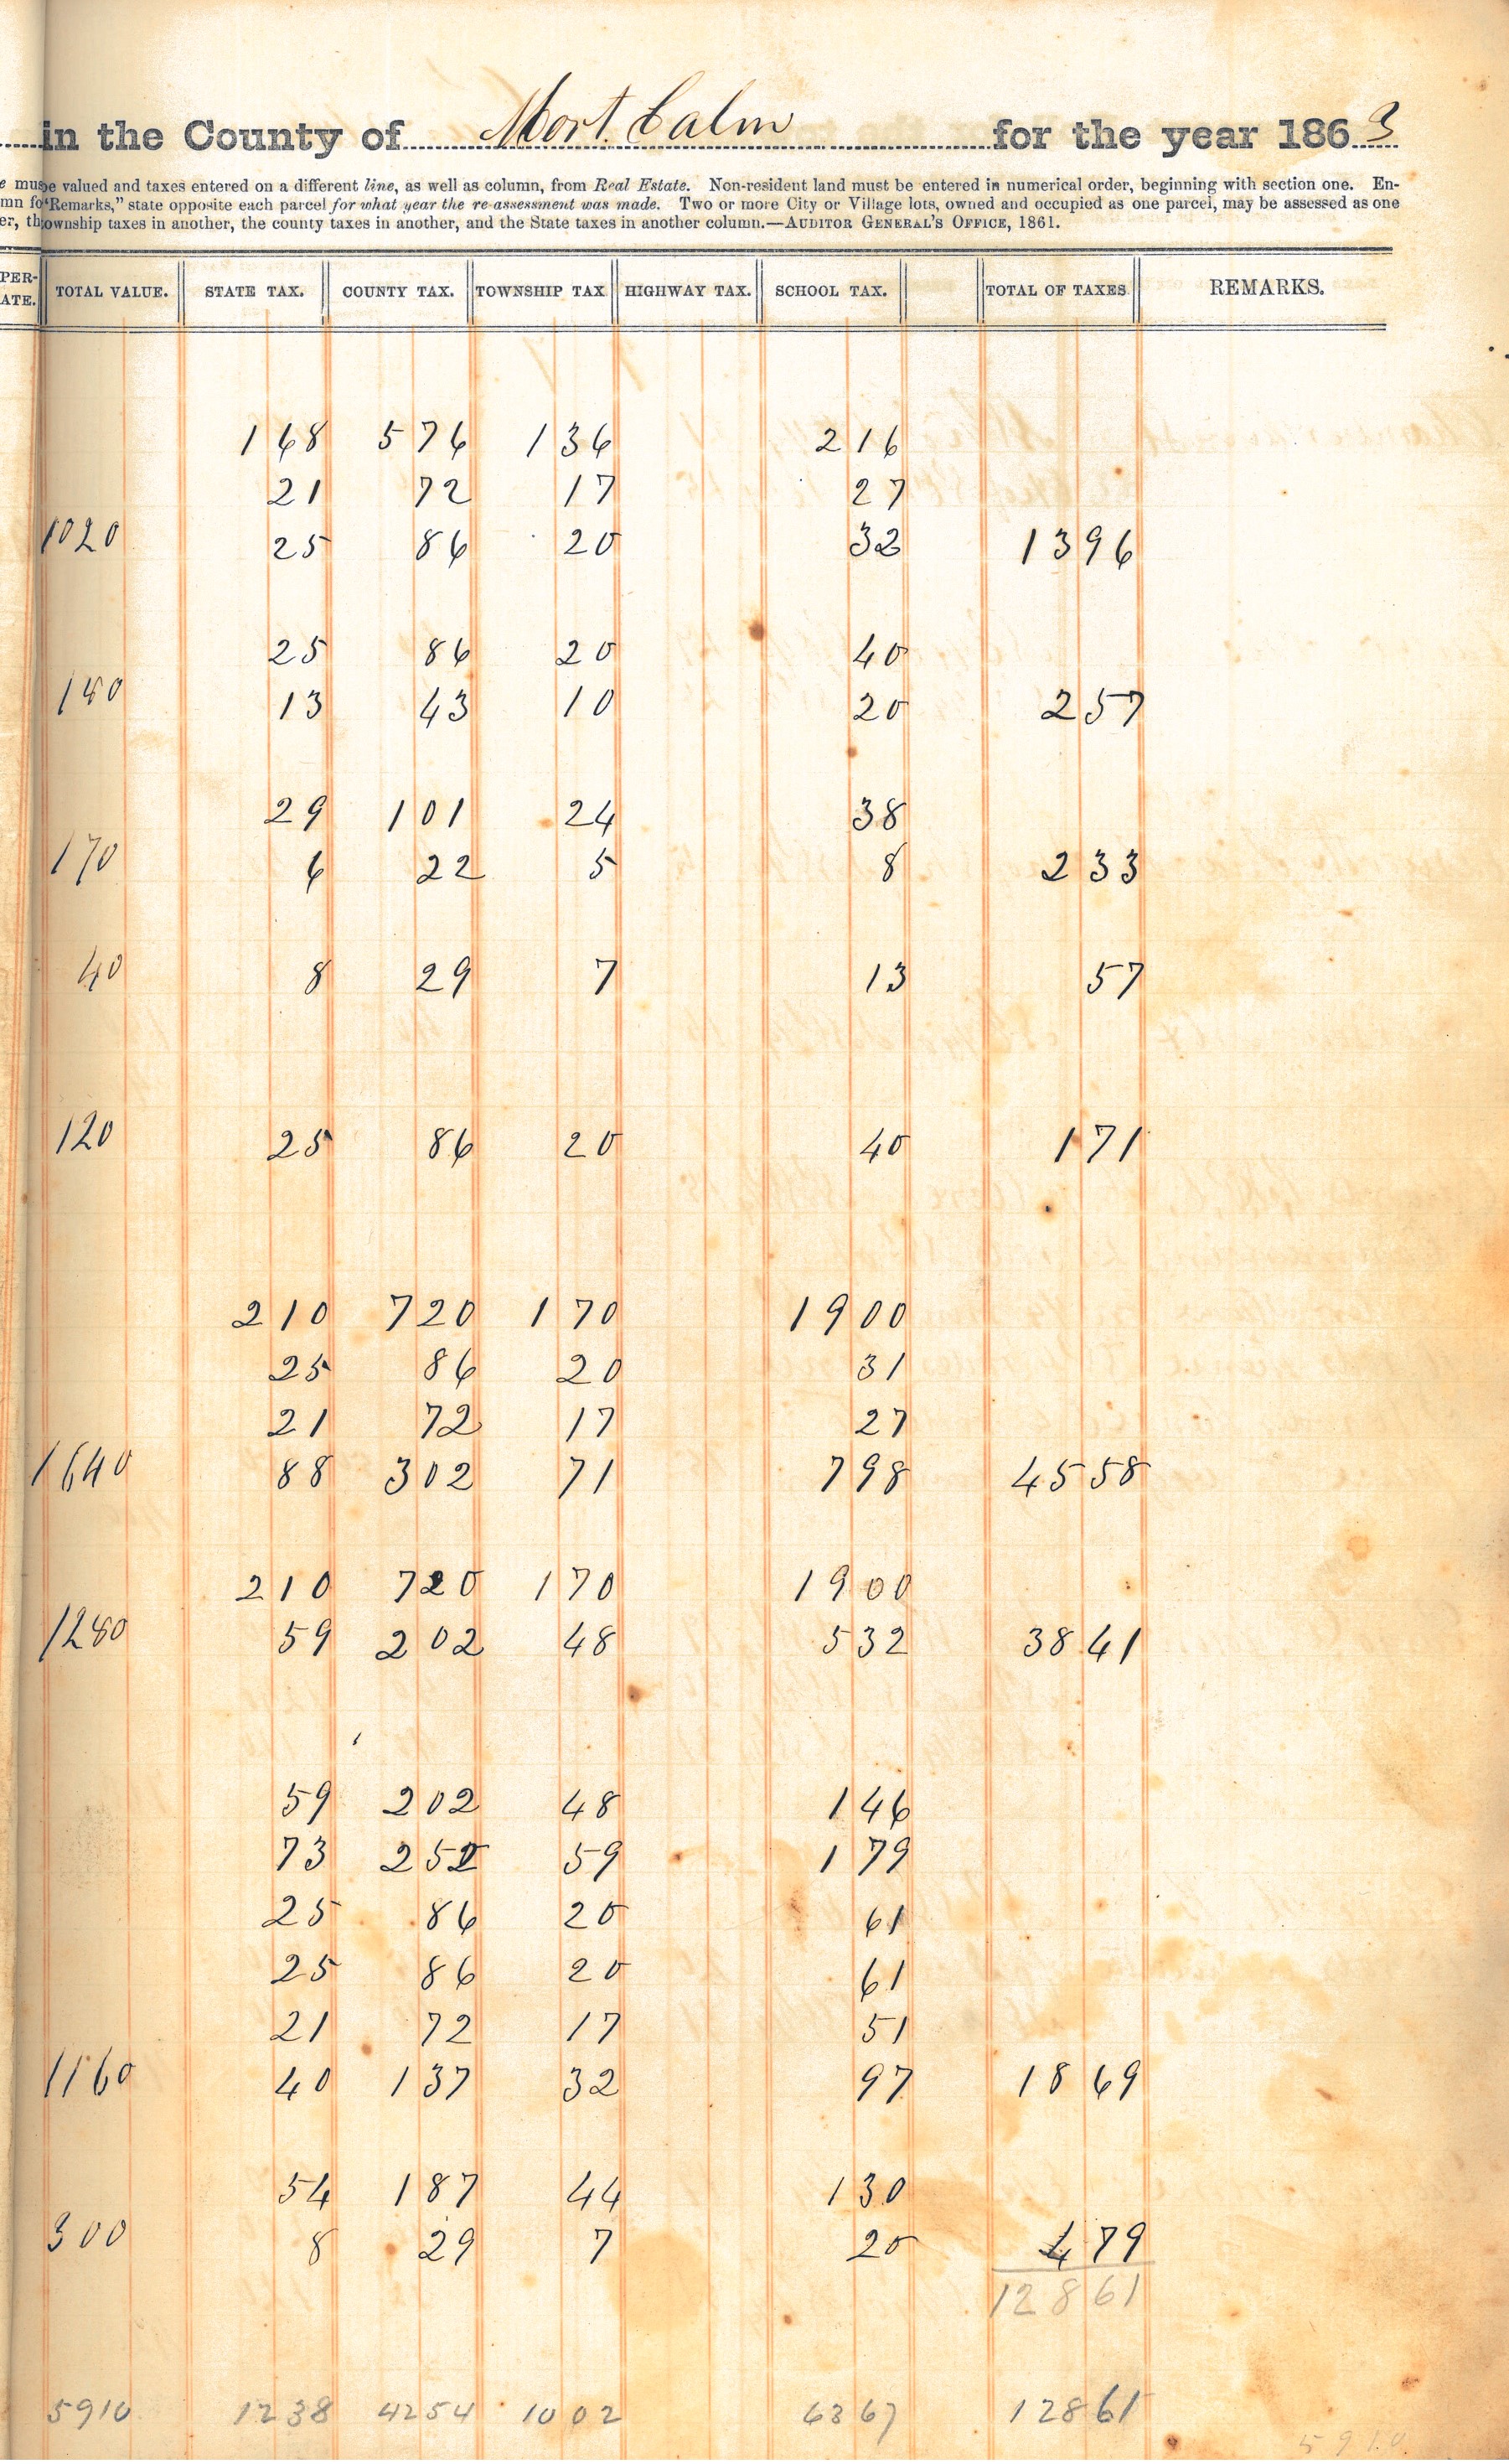 in the County of Mort. Calm for the year 1863
e mus be valued and taxes entered on a different line, as well as column, from Real Estate. Non-resident land must be entered in numerical order, beginning with section one. En-
mn fo "Remarks," state opposite each parcel for what year the re-assessment was made. Two or more City or Village lots, owned and occupied as one parcel, may be assessed as one
er, th township taxes in another, the county taxes in another, and the State taxes in another column.—AUDITOR GENERAL'S OFFICE, 1861.
PER- ATE. TOTAL VALUE. STATE TAX. COUNTY TAX. TOWNSHIP TAX HIGHWAY TAX. SCHOOL TAX. TOTAL OF TAXES REMARKS.
168 576 136 216
21 72 17 27
1020 25 86 20 32 1396
25 86 20 40
180 13 43 10 20 257
29 101 24 38
170 6 22 5 8 233
40 8 29 7 13 57
120 25 86 20 40 171
210 720 170 1900
25 86 20 31
21 72 17 27
1640 88 302 71 798 4558
210 720 170 1900
1280 59 202 48 532 3841
59 202 48 146
73 252 59 179
25 86 20 61
25 86 20 61
21 72 17 51
1160 40 137 32 97 1869
54 187 44 130
300 8 29 7 20 479
12861
5910 1238 4254 1002 6367 12861
5910